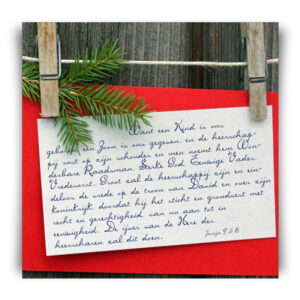 Want een Kind is ons
geboren, een Zoon is ons gegeven, en de heerschap-
pij rust op zijn schouder en men noemt hem Won-
derbare Raadsman, Sterke God, Eeuwige Vader,
Vredevorst. Groot zal de heerschappij zijn en ein-
deloos de vrede op de troon van David en over zijn
koninkrijk, doordat hij het sticht en grondvest met
recht en gerechtigheid van nu aan tot in
eeuwigheid. De ijver van de Here der
heerscharen zal dit doen. Jesaja 9:5,6